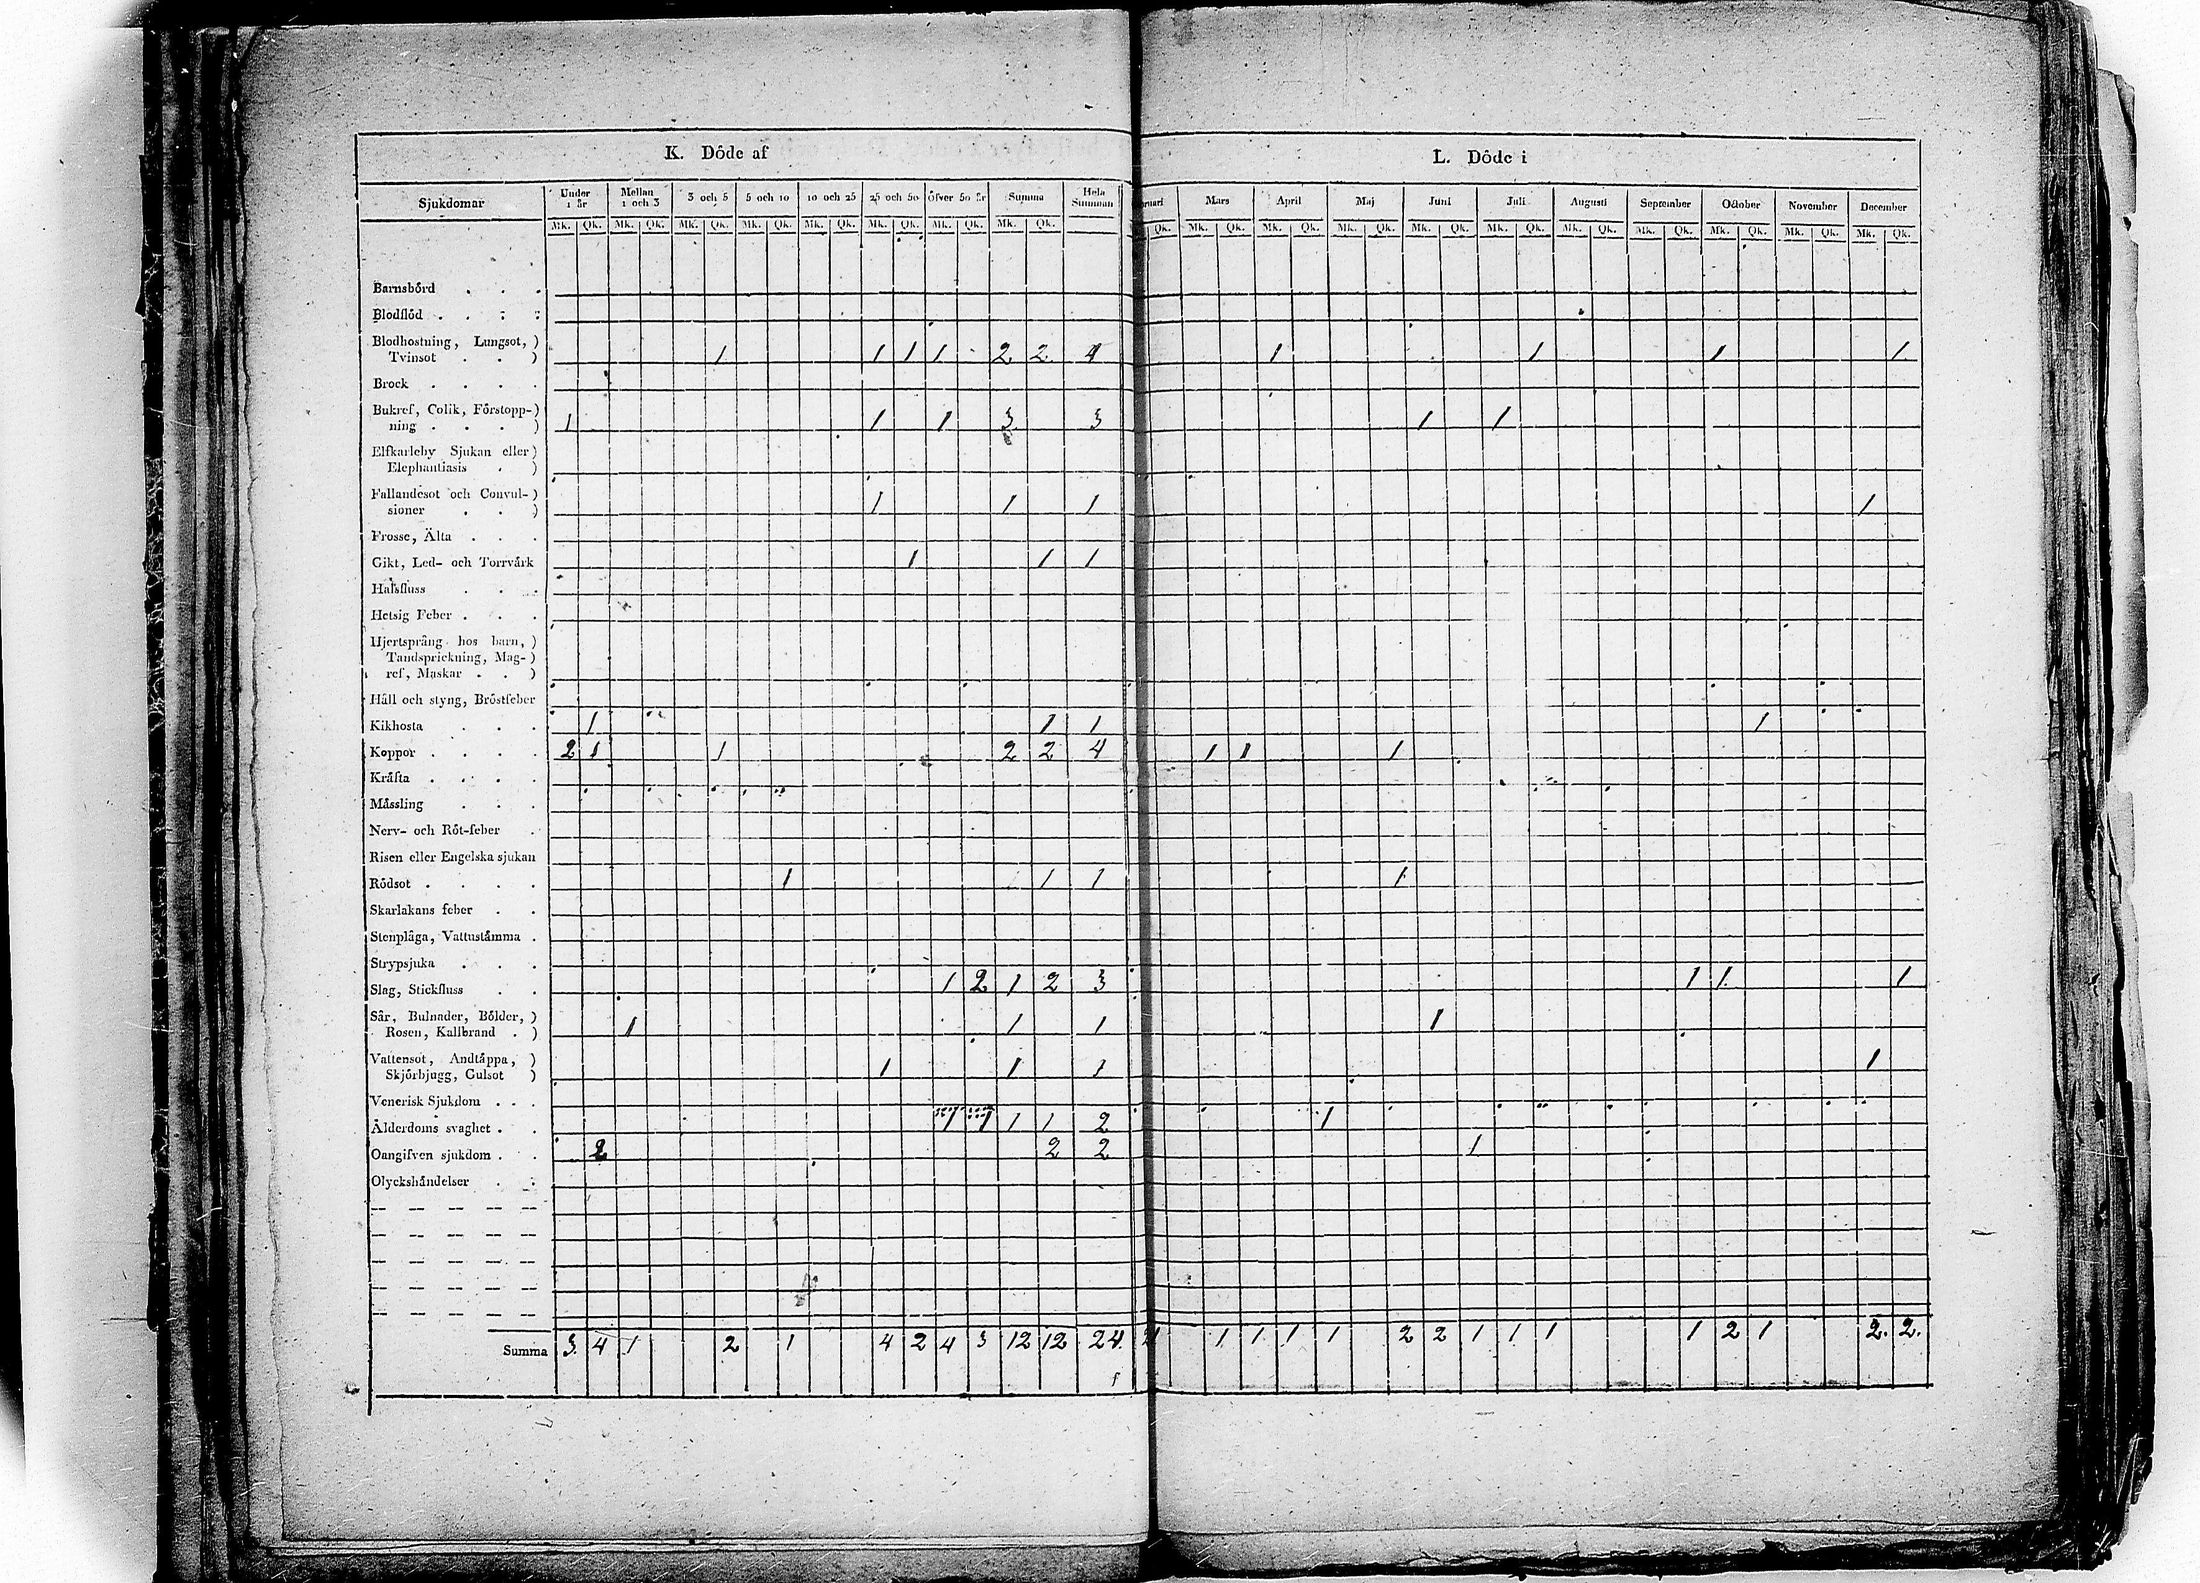 K. Döde af
Sjukdomar Under 1 år Mellan 1 och 3 3 och 5 5 och 10 10 och 25 25 och 50 öfver 50 år Summa Hela Summan
Mk. Qk. Mk. Qk. Mk. Qk. Mk. Qk. Mk. Qk. Mk. Qk. Mk. Qk. Mk. Qk.
Barnsbörd . . .
Blodflöd . . . .
Blodhostning, Lungsot, )
Tvinsot . . ) 1 1 1 1 2 2 4
Brock . . . .
Bukref, Colik, Förstopp-)
ning . . . ) 1 1 1 3 3
Elfkarleby Sjukan eller)
Elephantiasis . )
Fallandesot och Convul-)
sioner . . ) 1 1 1
Frosse, Älta . . .
Gikt, Led- och Torrvärk 1 1 1
Halsfluss . . .
Hetsig Feber . . .
Hjertsprång hos barn, )
Tandsprickning, Mag-)
ref, Maskar . . )
Håll och styng, Bröstfeber
Kikhosta . . . 1 1 1
Koppor . . . . 2 1 1 2 2 4
Kräfta . . . .
Mässling . . .
Nerv- och Röt-feber .
Risen eller Engelska sjukan
Rödsot . . . . 1 1 1
Skarlakans feber . .
Stenplåga, Vattustämma .
Strypsjuka . . .
Slag, Stickfluss . . 1 2 1 2 3
Sår, Bulnader, Bölder, )
Rosen, Kallbrand . ) 1 1 1
Vattensot, Andtäppa, )
Skjörbjugg, Gulsot ) 1 1 1
Venerisk Sjukdom . . .
Ålderdoms svaghet . . 1 1 1 1 2
Oangifven sjukdom . . 2 2 2
Olyckshändelser . .
Summa 3. 4 1 2 1 4 2 4 3 12 12 24.
L. Döde i
Mars April Maj Juni Juli Augusti September October November December
Qk. Mk. Qk. Mk. Qk. Mk. Qk. Mk. Qk. Mk. Qk. Mk. Qk. Mk. Qk. Mk. Qk. Mk. Qk. Mk. Qk.
1 1 1 1
1 1
1
1
1 1 1
1
1 1. 1
1
1
1
1
1. 1 1 1 2 2 1 1 1 1 2 1 2. 2.